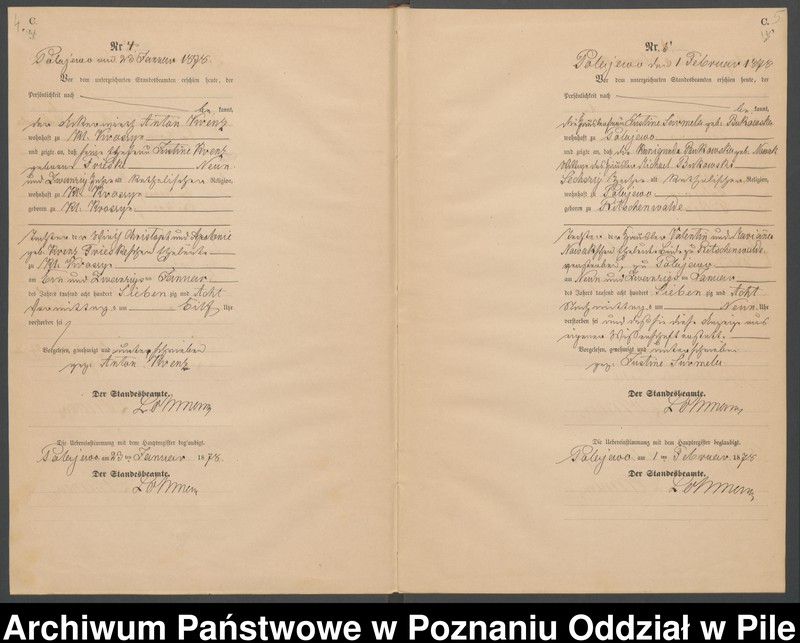 4.
C.
Nr. 4
Polajewo am 23 Januar 1878.
Vor dem unterzeichneten Standesbeamten erschien heute, der
Persönlichkeit nach
be kannt,
der Ackerwirth Anton Krenz
wohnhaft zu Kl. Kroszyn
und zeigte an, daß seine Ehefrau Justine Krenz
geborene Friedkt Neun
und Zwanzig Jahre alt Katholischer Religion,
wohnhaft zu Kl. Kroszyn
geboren zu Kl. Kroszyn
Tochter der Wirth Christoph und Apolonie
geb. Krenz Friedkschen Eheleute
zu Kl. Kroszyn
am Ein und Zwanzigsten Januar
des Jahres tausend acht hundert Sieben zig und Acht
Vormittags um Eilf Uhr
verstorben sei
Vorgelesen, genehmigt und unterschrieben
gez. Anton Krenz
Der Standesbeamte.
Die Uebereinstimmung mit dem Hauptregister beglaubigt.
Polajewo am 23 ten Januar 1878.
Der Standesbeamte.
5
C.
Nr. 5
Polajewo den 1 Februar 1878
Vor dem unterzeichneten Standesbeamten erschien heute, der
Persönlichkeit nach
be kannt,
die Häuslerfrau Justine Surmela geb. Bukowska
wohnhaft zu Polajewo
und zeigte an, daß die Kunigunde Bukowska geb. Nowak
Wittwe des Häusler Michael Bukowski
Sechszig Jahre alt Katholischer Religion,
wohnhaft zu Polajewo
geboren zu Ritschenwalde
Tochter der Häusler Valentin und Marianna
Nowakschen Eheleute Beide zu Ritschenwalde
verstorben, zu Polajewo
am Neun und Zwanzigsten Januar
des Jahres tausend acht hundert Sieben zig und Acht
Nachmittags um Neun Uhr
verstorben sei und daß sie diese Anzeige aus
eigener Wissenschaft erstatte.
Vorgelesen, genehmigt und unterschrieben
gez. Justine Surmela
Der Standesbeamte.
Die Uebereinstimmung mit dem Hauptregister beglaubigt.
Polajewo am 1 ten Februar 1878
Der Standesbeamte.
Archiwum Państwowe w Poznaniu Oddział w Pile